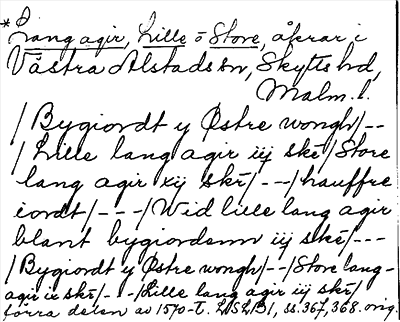 *Lang agir, Lille o Store, åkrar i
Västra Alstads sn, Skytts hd,
Malm. l.
/Bygiordt y Østre wongh/--
/Lille lang agir iij skr/Store
lang agir xij skr/--/hauffre
iordt/---/Wid lille lang agir
blant bygiordenn iij skr/---
/Bygiordt y Østre wongh/--/Store lang-
agir ix skr/---/Lille lang agir iij skr/
förra delen av 1570-t. LUSLB1, ss. 367, 368. orig.